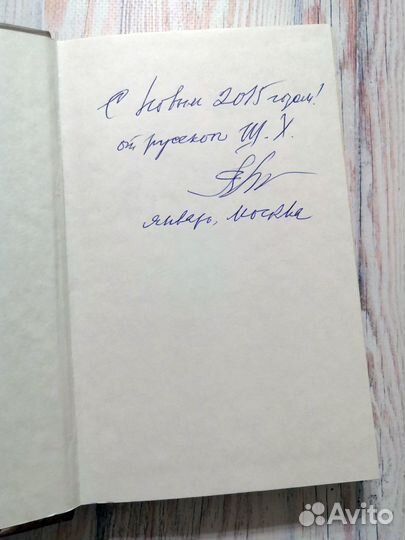 С Новым 2015 годом!
от русской Щ.Х.
январь, Москва
Avito